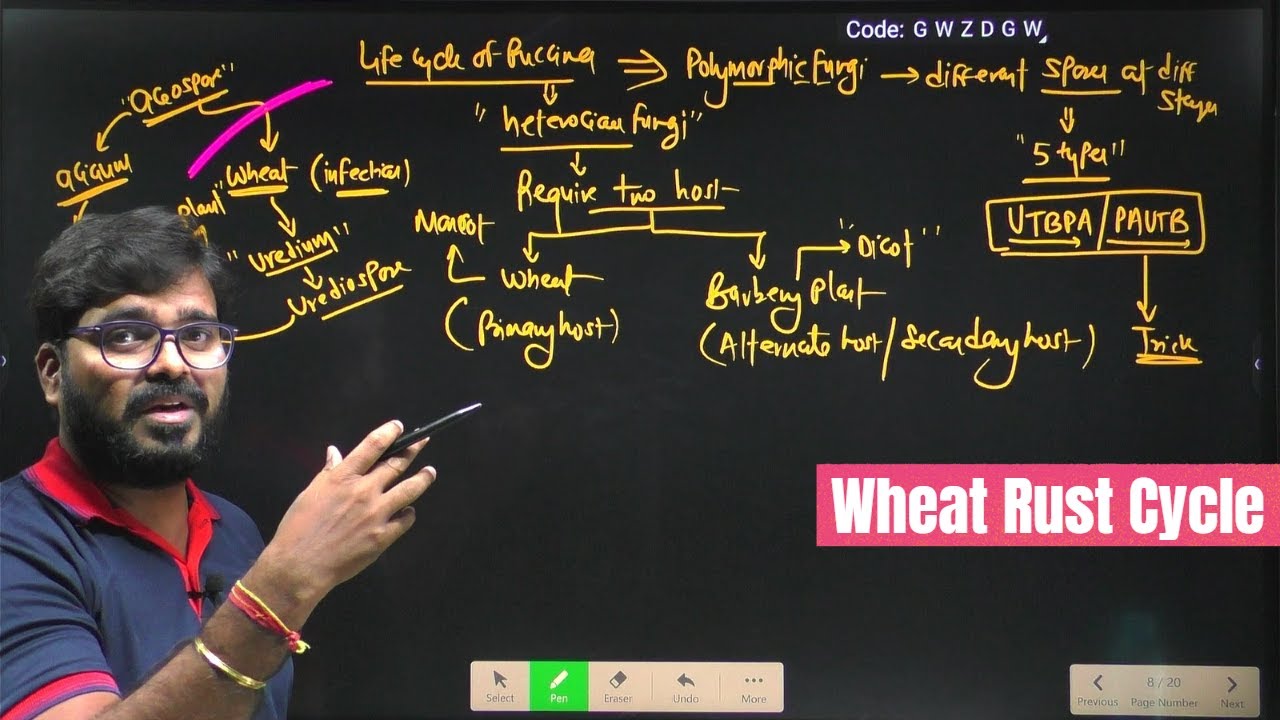 Code: G W Z D G W
Life Cycle of Puccina ⇒ Polymorphic Fungi → different spores at diff
stages
"aceospore"
"heterocian fungi"
"5 types"
acicum
Wheat (infection)
Require two host
UTBPA/PAUTB
plant"
Monocot
"Dicot"
"Uredium"
Wheat
Barbery plant
Urediospore
(Primary host)
(Alternate host/Secondary host)
Trick
Wheat Rust Cycle
Select
Pen
Eraser
Undo
More
8 / 20
Previous Page Number Next